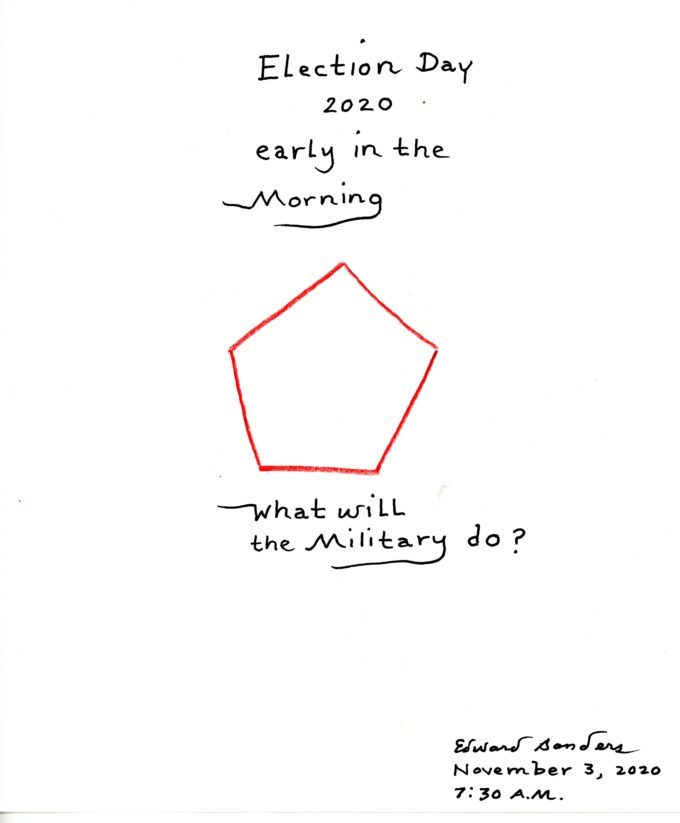 Election Day
2020
early in the
Morning
What will
the Military do?
Edward Sanders
November 3, 2020
7:30 A.M.